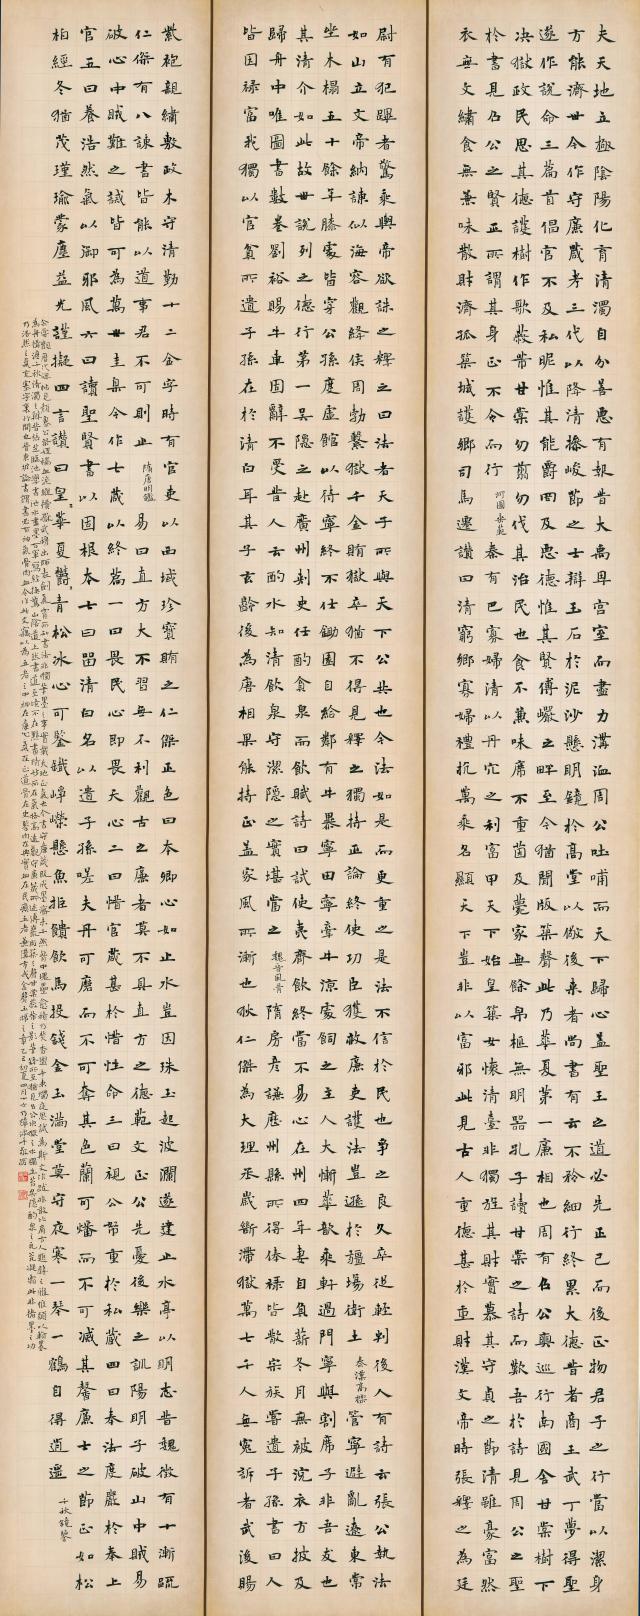 夫天地立極陰陽化育清濁自分善惡有報昔大禹卑宮室而盡力溝洫周公吐哺而天下歸心蓋聖王之道必先正己而後正物君子之行當以潔身
方能濟世今作守廉箴考三代以降清操峻節之士辯玉石於泥沙懸明鏡於高堂以儆後來者尚書有云不矜細行終累大德昔者商王武丁夢得聖
遂作說命三篇首倡官不及私昵惟其能爵罔及惡德惟其賢傅巖之畔至今猶聞版築聲此乃華夏第一廉相也周有召公奭巡行南國舍甘棠樹下
决獄政民思其德護樹作歌蔽芾甘棠勿翦勿伐其治民也食不兼味席不重茵及薨家無餘帛柩無明器孔子讀甘棠之詩而歎吾於詩見周公之聖
於書見召公之賢正所謂其身正不令而行 河圖垂範 秦有巴寡婦清以丹穴之利富甲天下始皇築女懷清臺非獨旌其財實慕其守貞之節清雖豪富然
衣無文繡食無兼味散財濟孤築城護鄉司馬遷讚曰清窮鄉寡婦禮抗萬乘名顯天下豈非以富邪此見古人重德甚於重財漢文帝時張釋之為廷
尉有犯蹕者驚乘輿帝欲誅之釋之曰法者天子所與天下公共也今法如是而更重之是法不信於民也爭之良久卒從輕判後人有詩云張公執法
如山立文帝納諫似海容觀絳侯周勃繫獄千金賄獄卒猶不得見釋之獨持正論終使功臣獲赦廉吏護法豈遜於疆場衛土 秦漢高標 管寧避亂遼東常
坐木榻五十餘年膝處皆穿公孫度虛館以待寧終不仕鋤園自給鄰有牛暴寧田寧牽牛涼處飼之主人大慚華歆乘軒過門寧與割席子非吾友也
其清介如此故世說列之德行第一吳隱之赴廣州刺史任酌貪泉而飲賦詩曰試使夷齊飲終當不易心在州四年妻自負薪冬月無被浣衣方披及
歸舟中唯圖書數卷劉裕賜牛車固辭不受昔人云酌水知清飲泉守潔隱之實堪當之 魏晉風骨 隋房彥謙歷州縣所得俸祿皆散宗族嘗遺子孫書曰人
皆因祿富我獨以官貧所遺子孫在於清白耳其子玄齡後為唐相果能持正蓋家風所漸也狄仁傑為大理丞歲斷滯獄萬七千人無冤訴者武後賜
紫袍親繡敷政木守清勤十二金字時有官吏以西域珍寶賄之仁傑正色曰本卿心如止水豈因珠玉起波瀾遂建止水亭以明志昔魏徵有十漸疏
仁傑有八諫書皆能以道事君不可則止 隋唐明鑑 易曰直方大不習無不利觀古之廉者莫不具直方之德範文正公先憂後樂之訓陽明子破山中賊易
破心中賊難之誡皆可為萬世圭臬今作七箴以終篇一曰畏民心即畏天心二曰惜官箴甚於惜性命三曰視公帑重於私藏四曰奉法度嚴於奉上
官五曰養浩然氣以御邪風六曰讀聖賢書以固根本七曰留清白名以遺子孫嗟夫丹可磨而不可奪其色蘭可燔而不可滅其馨廉士之節正如松
柏經冬猶茂瑾瑜蒙塵益光謹擬四言讚曰皇皇華夏鬱鬱青松冰心可鑒鐵崢嶸懸魚拒饋飲馬投錢金玉滿堂莫守夜寒一琴一鶴自得逍遥 千秋鏡鑒